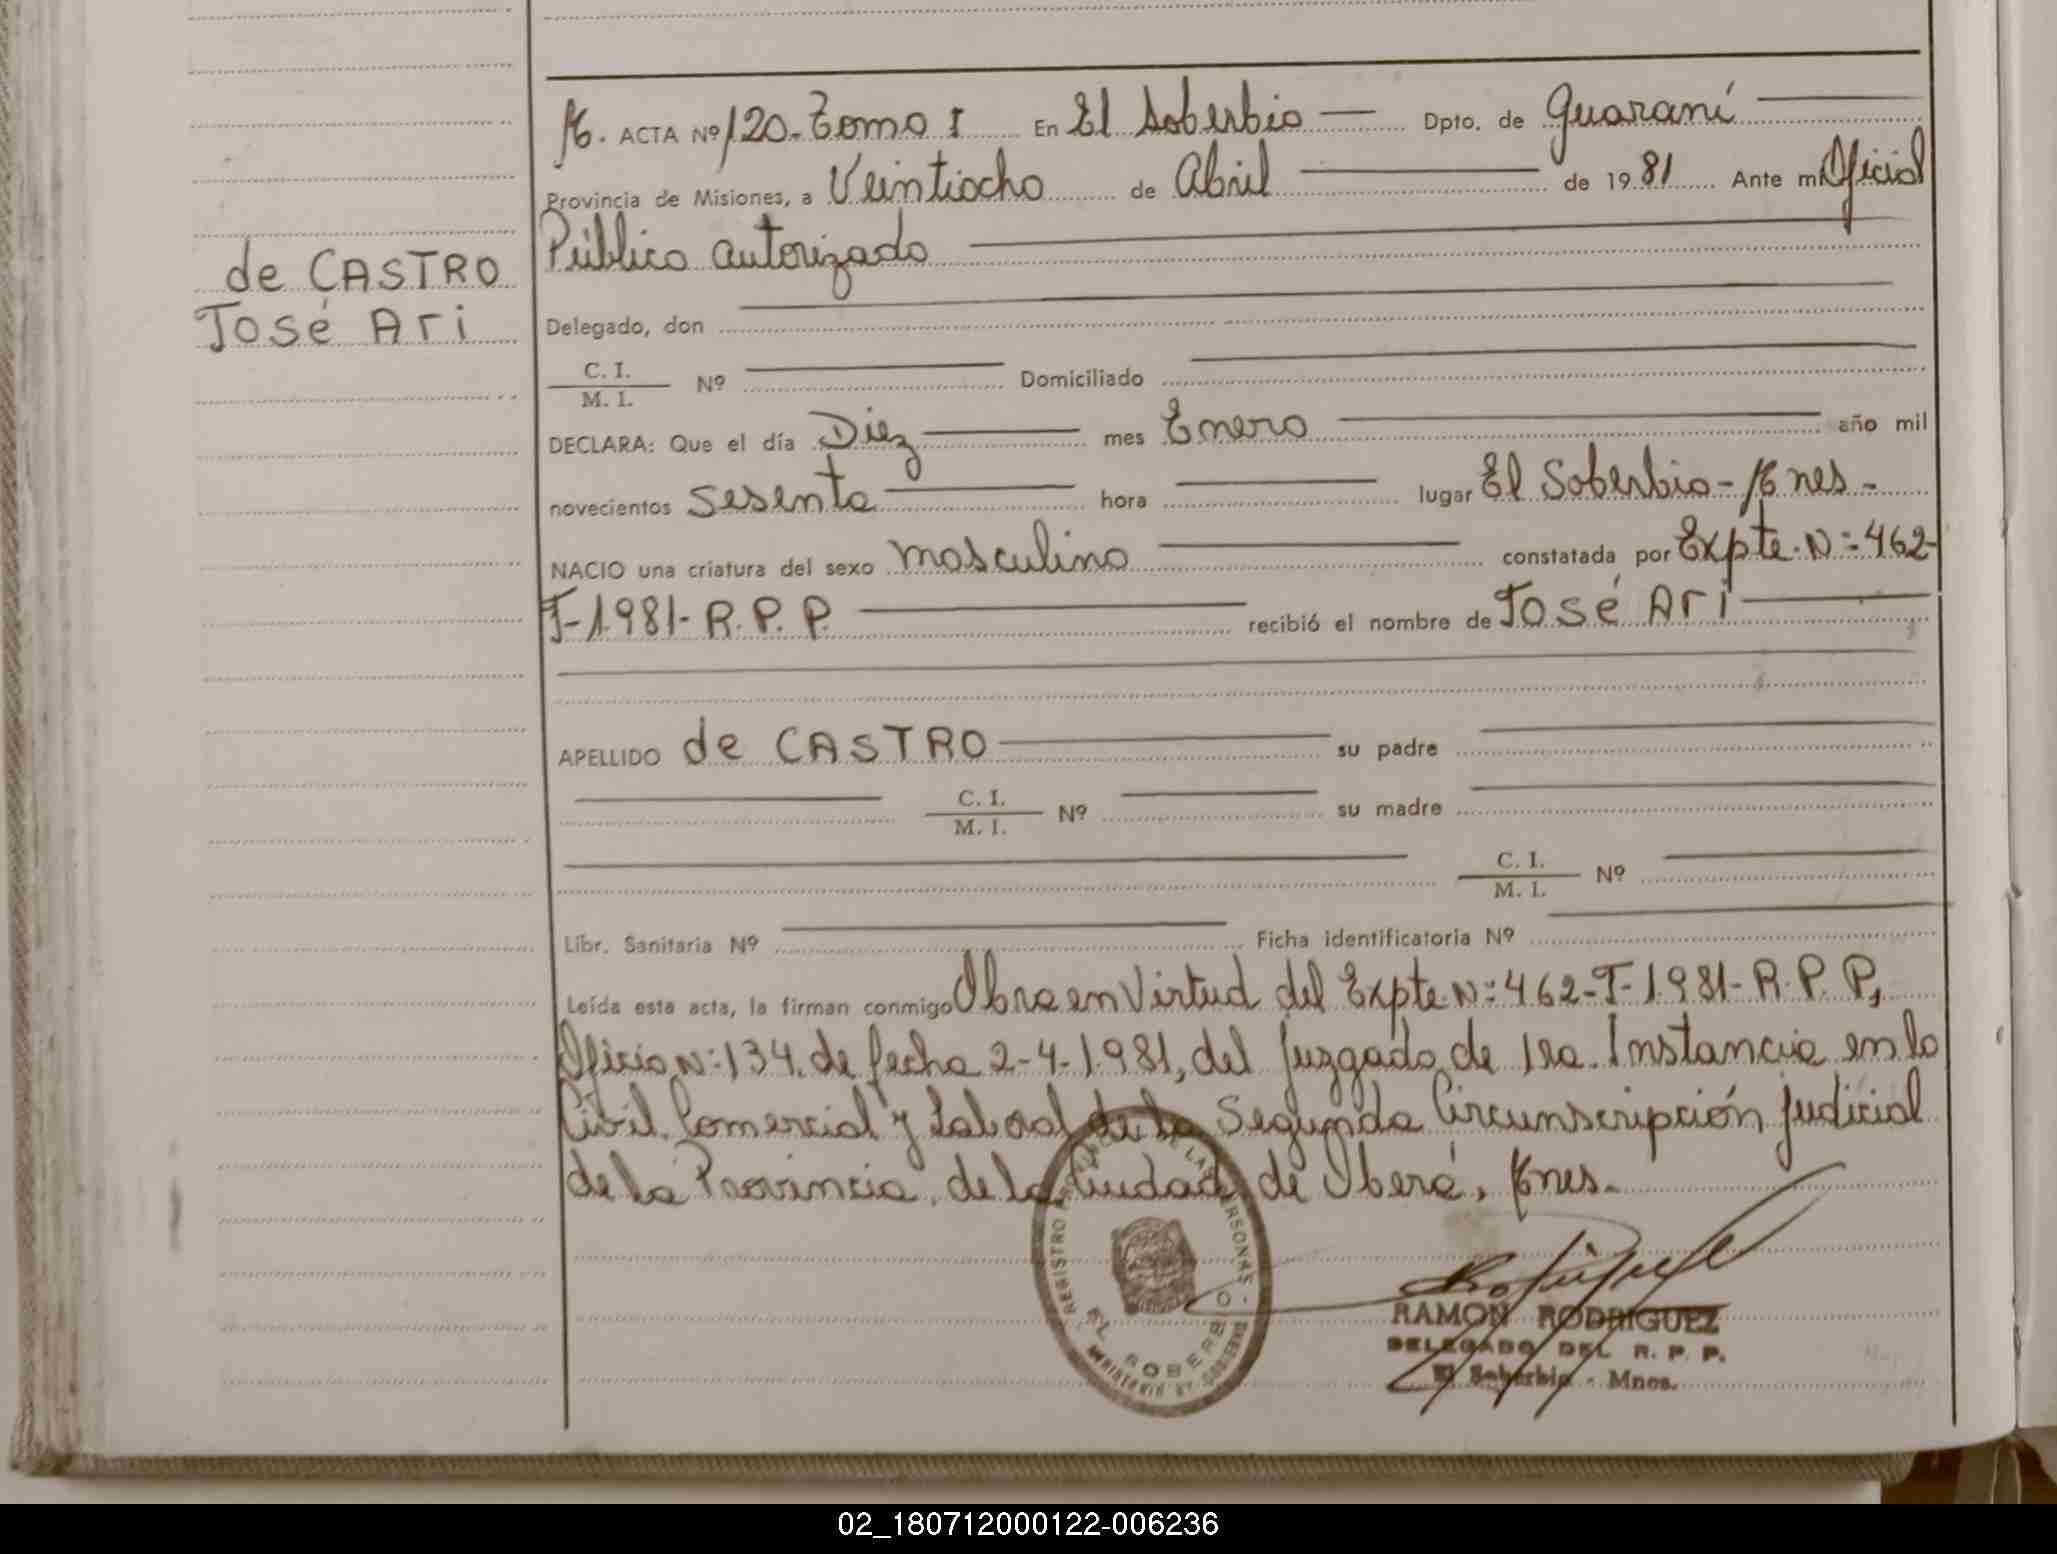 de CASTRO
José Ari
M. ACTA Nº 120. Tomo I En El Soberbio Dpto. de Guaraní
Provincia de Misiones, a Veintiocho de Abril de 1981 Ante mí Oficial
Público autorizado
Delegado, don
C. I.
M. I. Nº Domiciliado
DECLARA: Que el día Diez mes Enero año mil
novecientos Sesenta hora lugar El Soberbio - Mnes -
NACIO una criatura del sexo masculino constatada por Expte. N: 462-
T-1981- R. P. P. recibió el nombre de José Ari
APELLIDO de CASTRO su padre
C. I.
M. I. Nº su madre
C. I.
M. I. Nº
Libr. Sanitaria Nº Ficha identificatoria Nº
Leída esta acta, la firman conmigo Obra en Virtud del Expte N: 462-T-1981- R. P. P,
Oficio N: 134. de fecha 2-4-1981, del Juzgado de 1ra. Instancia en lo
Civil Comercial y Laboral de la Segunda Circunscripción Judicial
de la Provincia, de la Ciudad de Oberá, Mnes.
EL SOBERBIO
RAMON RODRIGUEZ
DELEGADO DEL R. P. P.
El Soberbio - Mnes.
02_180712000122-006236